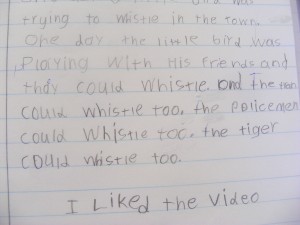 bird was
trying to whistle in the town.
One day the little bird was
Playing With His friends and
they could whistle. and The
could whistle too. the Policemen
could whistle too. the tiger
could whistle too.
I Liked the Video